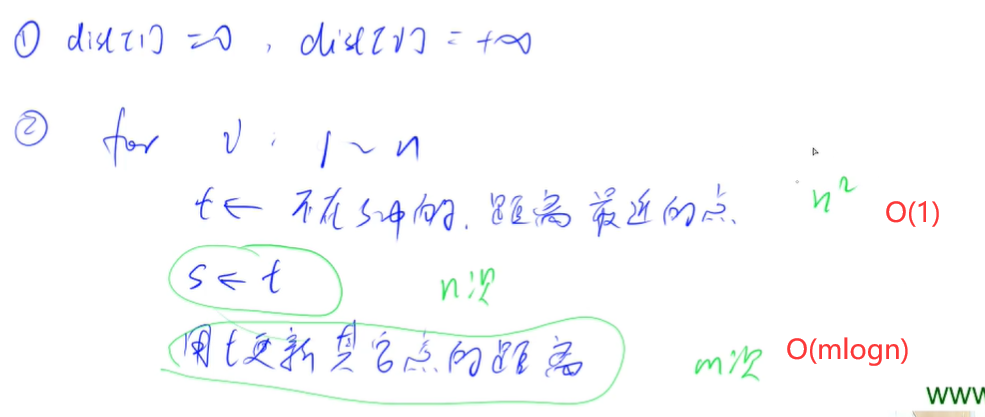 ① dist[1] = 0, dist[v] = +∞
② for v: 1 ~ n
t ← 不在s中的, 距离最近的点 n² O(1)
s ← t n次
用t更新其它点的距离 m次 O(mlogn)
www